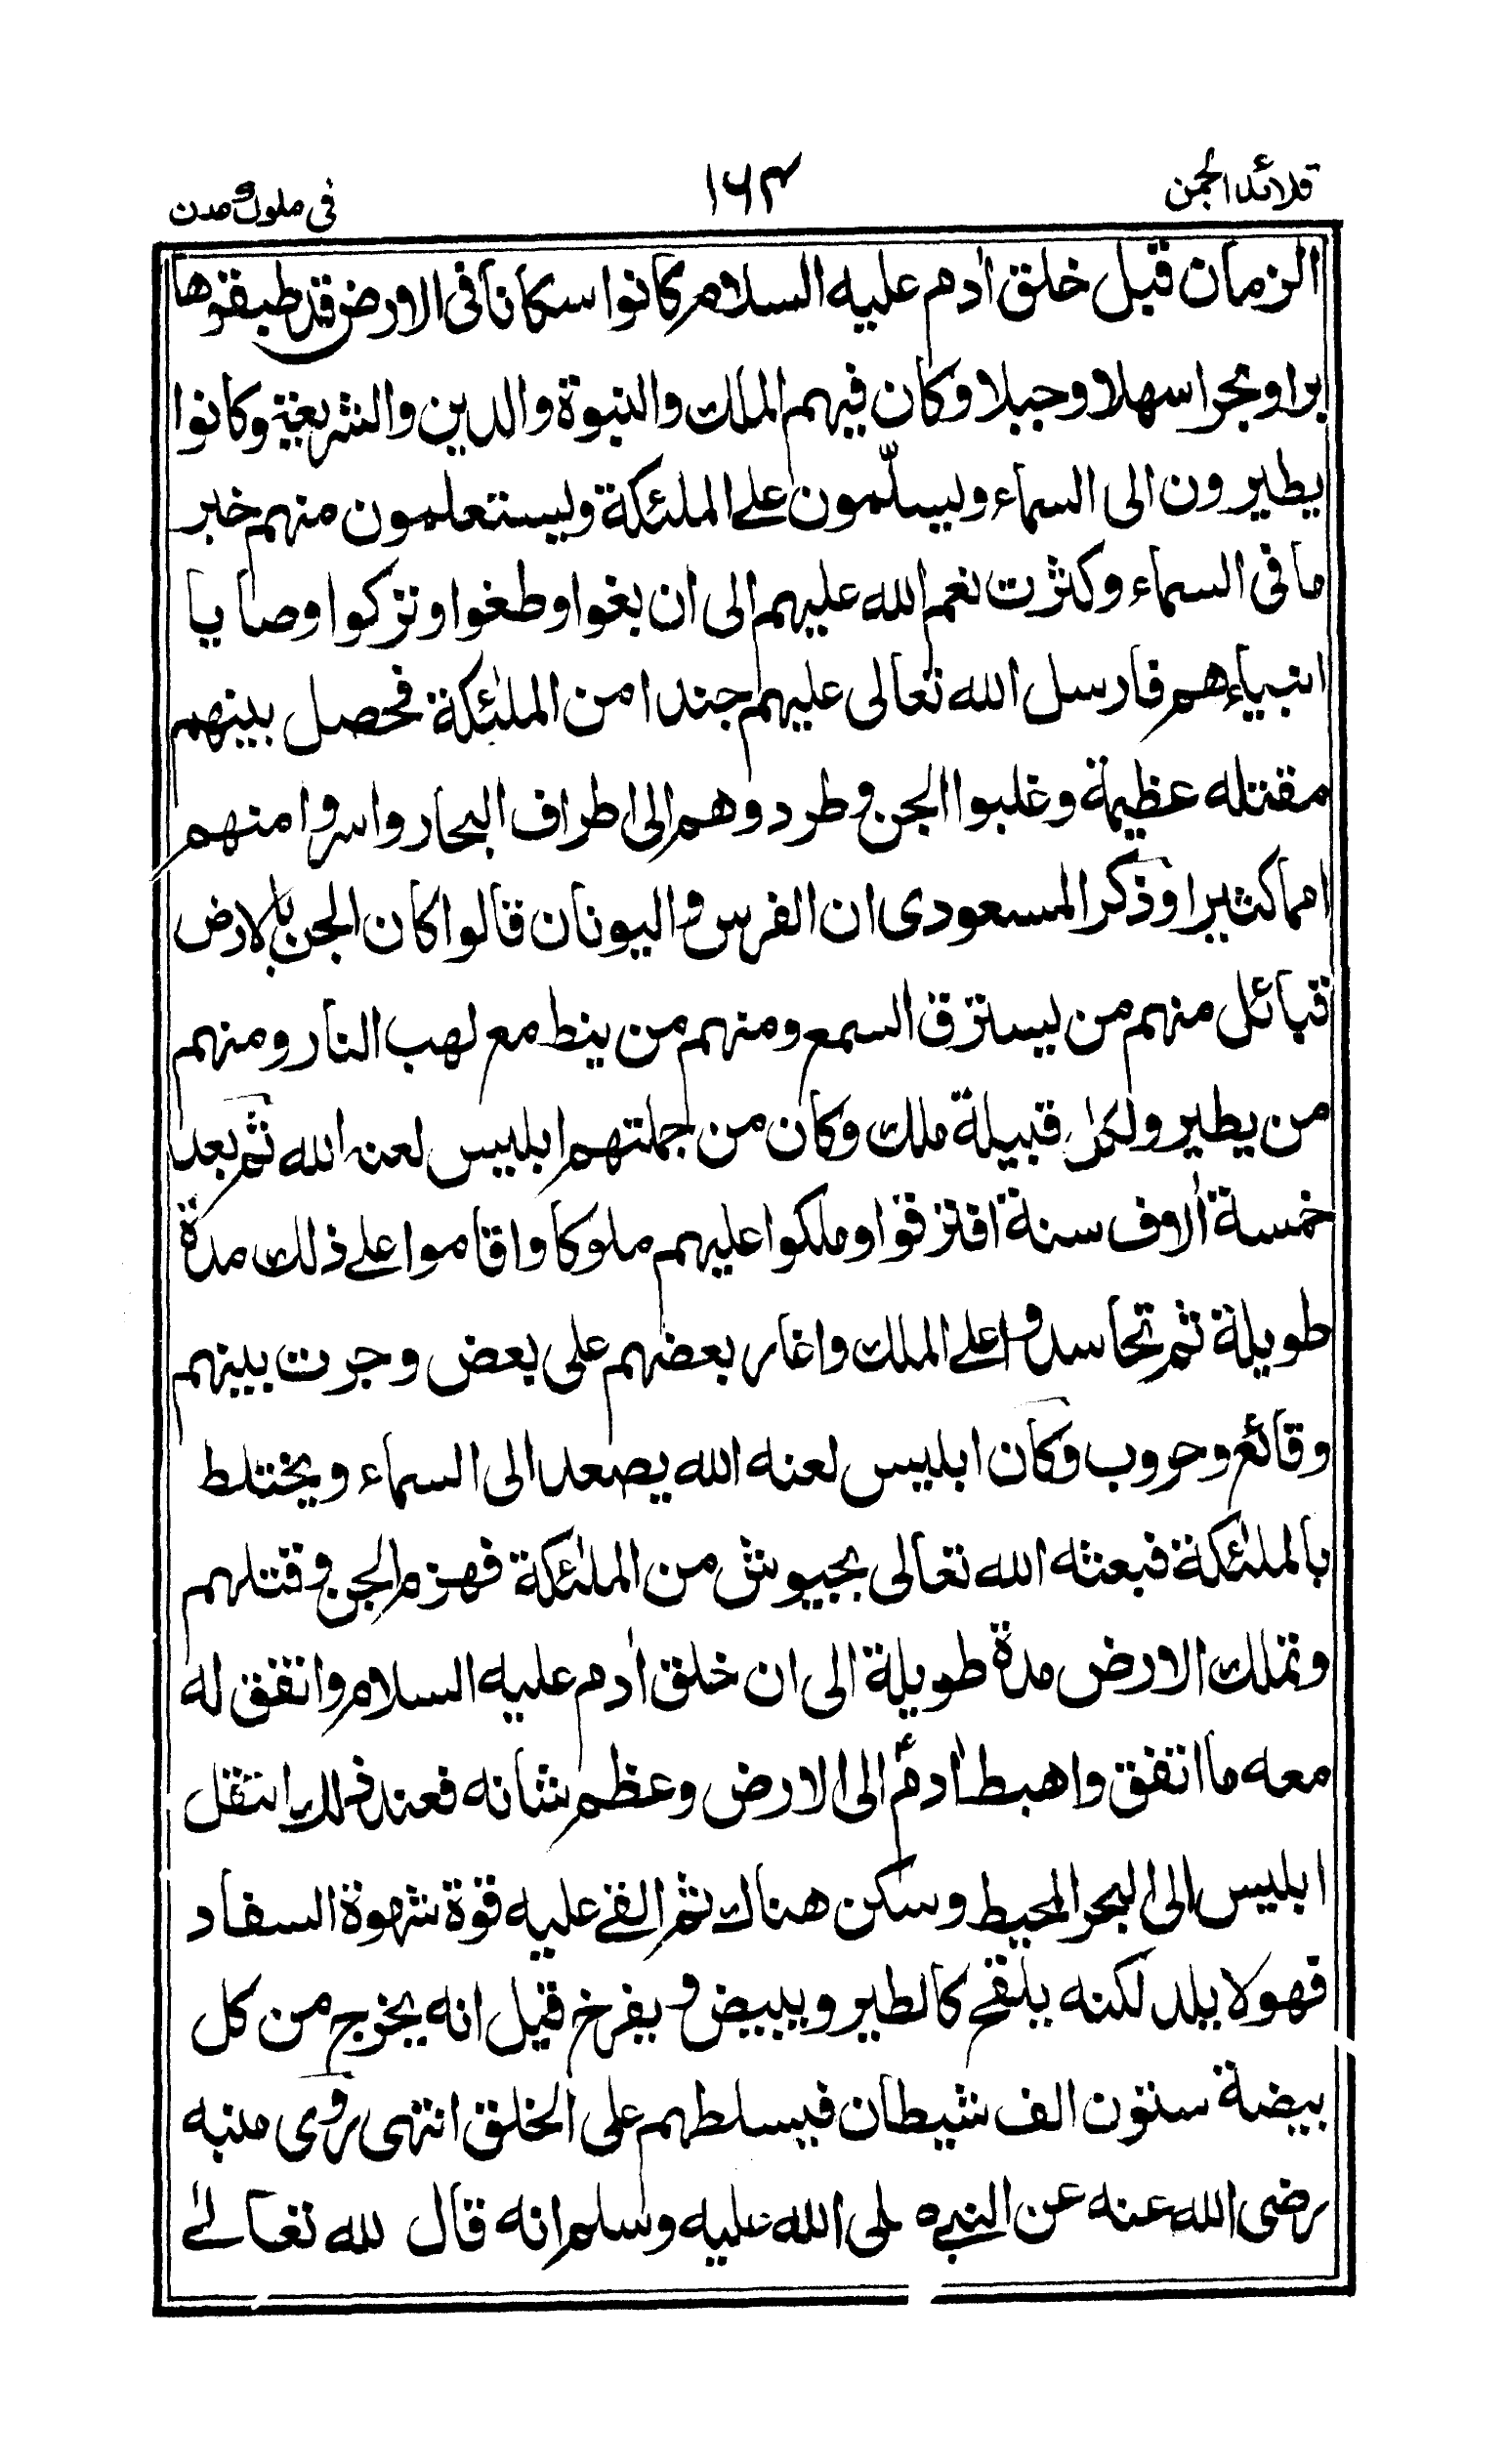 قلائد الجمن ١٦٤ فى ملوك مدن
الزمان قبل خلق اٰدم عليه السلام كانوا سكانا فى الارض قد طبقوها
برا وبحرا سهلا وجبلا وكان فيهم الملك والنبوة والدين والشريعة وكانوا
يطيرون الى السماء ويسلّمون على الملئكة ويستعلمون منهم خبر
ما فى السماء وكثرت نعم الله عليهم الى ان بغوا وطغوا وتركوا وصايا
انبياءهم فارسل الله تعالى عليهم جندا من الملئكة فحصل بينهم
مقتله عظيمة وغلبوا الجن وطردوهم الى اطراف البحار واسروا منهم
امما كثيرا وذكر المسعودى ان الفرس واليونان قالوا كان الجن بالارض
قبائل منهم من يسترق السمع ومنهم من ينط مع لهب النار ومنهم
من يطير ولكل قبيلة ملك وكان من جملتهم ابليس لعنه الله ثم بعد
خمسة اٰلاف سنة افترقوا وملكوا عليهم ملوكا واقاموا على ذلك مدة
طويلة ثم تحاسدوا على الملك واغار بعضهم على بعض وجرت بينهم
وقائع وحروب وكان ابليس لعنه الله يصعد الى السماء ويختلط
بالملئكة فبعثه الله تعالى بجيوش من الملئكة فهزم الجن وقتلهم
وتملك الارض مدة طويلة الى ان خلق اٰدم عليه السلام واتفق له
معه ما اتفق واهبط اٰدمؑ الى الارض وعظم شانه فعند ذلك انتقل
ابليس الى البحر المحيط وسكن هناك ثم القى عليه قوة شهوة السفاد
فهو لا يلد لكنه يلقح كالطير ويبيض ويفرخ قيل انه يخرج من كل
بيضة ستون الف شيطان فيسلطهم على الخلق انتهى روى منبه
رضى الله عنه عن النبى لى الله عليه وسلم انه قال لله تعالى